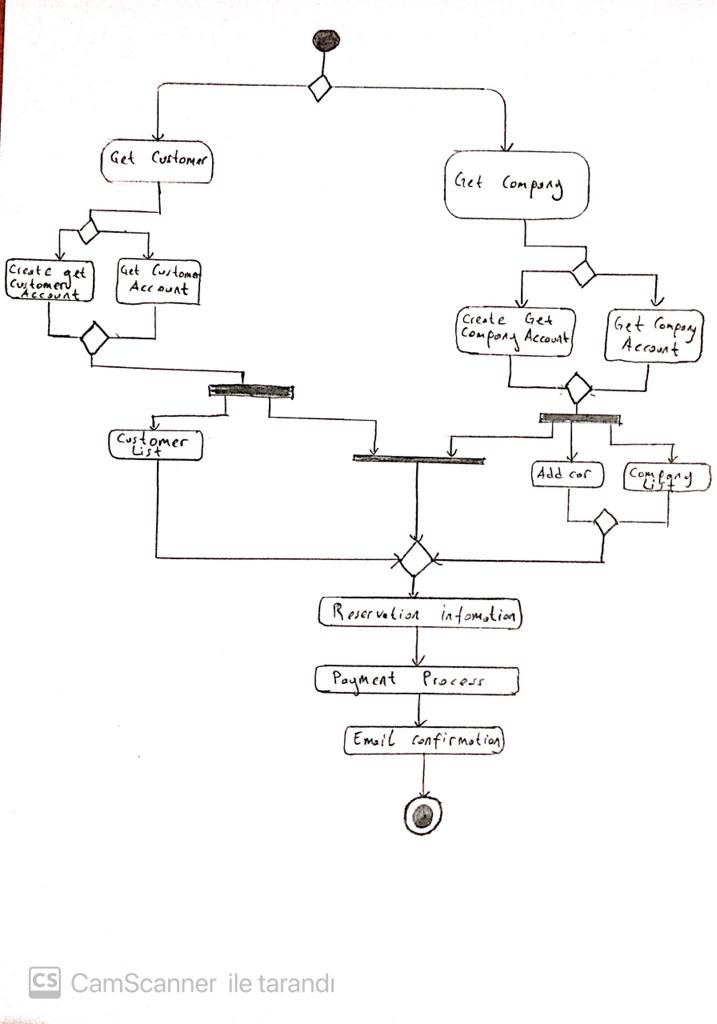 Get Customer
Get Company
Create get
Customer
Account
Get Customer
Account
Create Get
Company Account
Get Company
Account
Customer
List
Add car
Company
List
Reservation infomation
Payment Process
Email confirmation
CS CamScanner ile tarandı